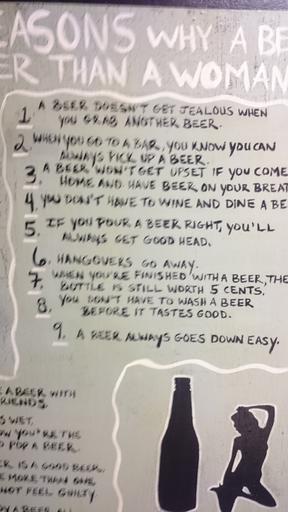 EASONS WHY A BE
ER THAN A WOMAN
1. A BEER DOESN'T GET JEALOUS WHEN
YOU GRAB ANOTHER BEER.
2. WHEN YOU GO TO A BAR, YOU KNOW YOU CAN
ALWAYS PICK UP A BEER.
3. A BEER WON'T GET UPSET IF YOU COME
HOME AND HAVE BEER ON YOUR BREAT
4. YOU DON'T HAVE TO WINE AND DINE A BE
5. IF YOU POUR A BEER RIGHT, YOU'LL
ALWAYS GET GOOD HEAD.
6. HANGOVERS GO AWAY.
7. WHEN YOU'RE FINISHED WITH A BEER, THE
BOTTLE IS STILL WORTH 5 CENTS.
8. YOU DON'T HAVE TO WASH A BEER
BEFORE IT TASTES GOOD.
9. A BEER ALWAYS GOES DOWN EASY.
E A BEER WITH
RIENDS.
S WET.
OW YOU'RE THE
O POP A BEER.
ER IS A GOOD BEER.
E MORE THAN ONE
NOT FEEL GUILTY
A BEER